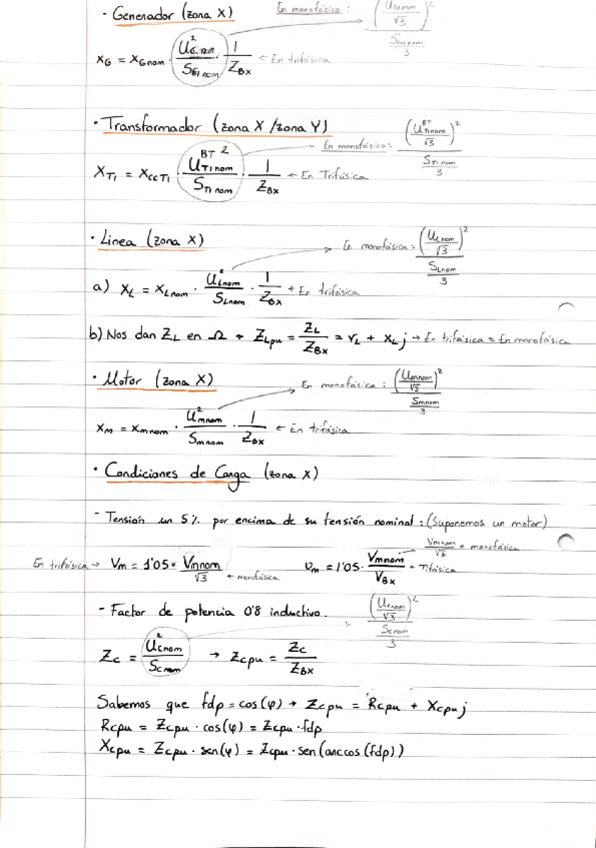 · Generador (zona X)
En monofásico: (UGnom/√3)² / (SGnom/3)
xG = xGnom · U²Gnom/SGnom · 1/ZBx ← En trifásica
· Transformador (zona X/zona Y)
En monofásico: (U^BT T1nom/√3)² / (ST1nom/3)
XT1 = XccT1 · U^BT 2 T1nom/ST1nom · 1/ZBx ← En Trifásica
· Linea (zona X)
En monofásica: (ULnom/√3)² / (SLnom/3)
a) XL = XLnom · U²Lnom/SLnom · 1/ZBX → En trifásica
b) Nos dan ZL en Ω → ZLpu = ZL/ZBx = rL + XLj → En trifásica = En monofásica
· Motor (zona X)
En monofásica: (Umnom/√3)² / (Smnom/3)
xm = xmnom · U²mnom/Smnom · 1/ZBX ← En trifásica
· Condiciones de Carga (zona X)
- Tensión un 5% por encima de su tensión nominal: (Suponemos un motor)
Vmnom/√3 = monofásica
En trifásica → Vm = 1'05 · Vmnom/√3 ← monofásica
Um = 1'05 · Vmnom/VBx ← Trifásica
- Factor de potencia 0'8 inductivo.
(Ucnom/√3)² / (Scnom/3)
Zc = U²cnom/Scnom → Zcpu = Zc/ZBX
Sabemos que fdp = cos(φ) → Zcpu = Rcpu + Xcpuj
Rcpu = Zcpu · cos(φ) = Zcpu · fdp
Xcpu = Zcpu · sen(φ) = Zcpu · sen(arccos(fdp))